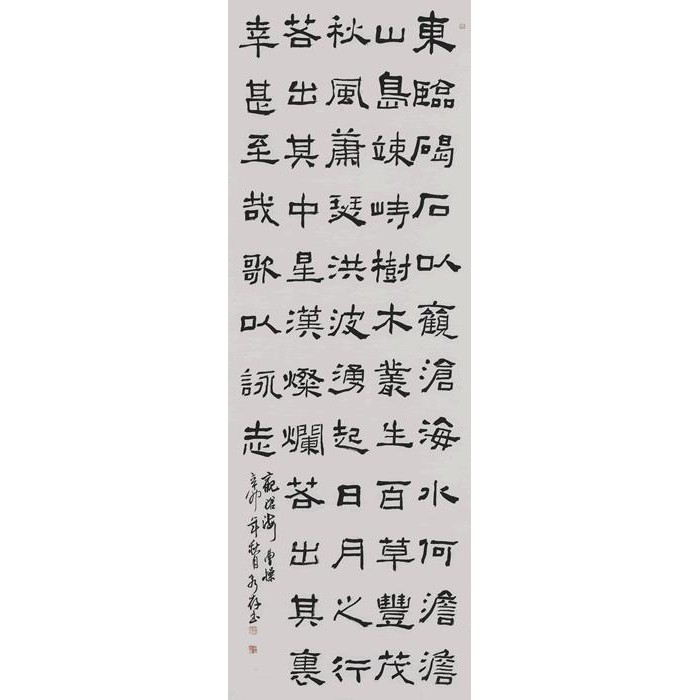 東臨碣石以觀滄海水何澹澹
山島竦峙樹木叢生百草豐茂
秋風蕭瑟洪波湧起日月之行
若出其中星漢燦爛若出其裏
幸甚至哉歌以詠志
觀滄海 曹操
辛卯年秋月書